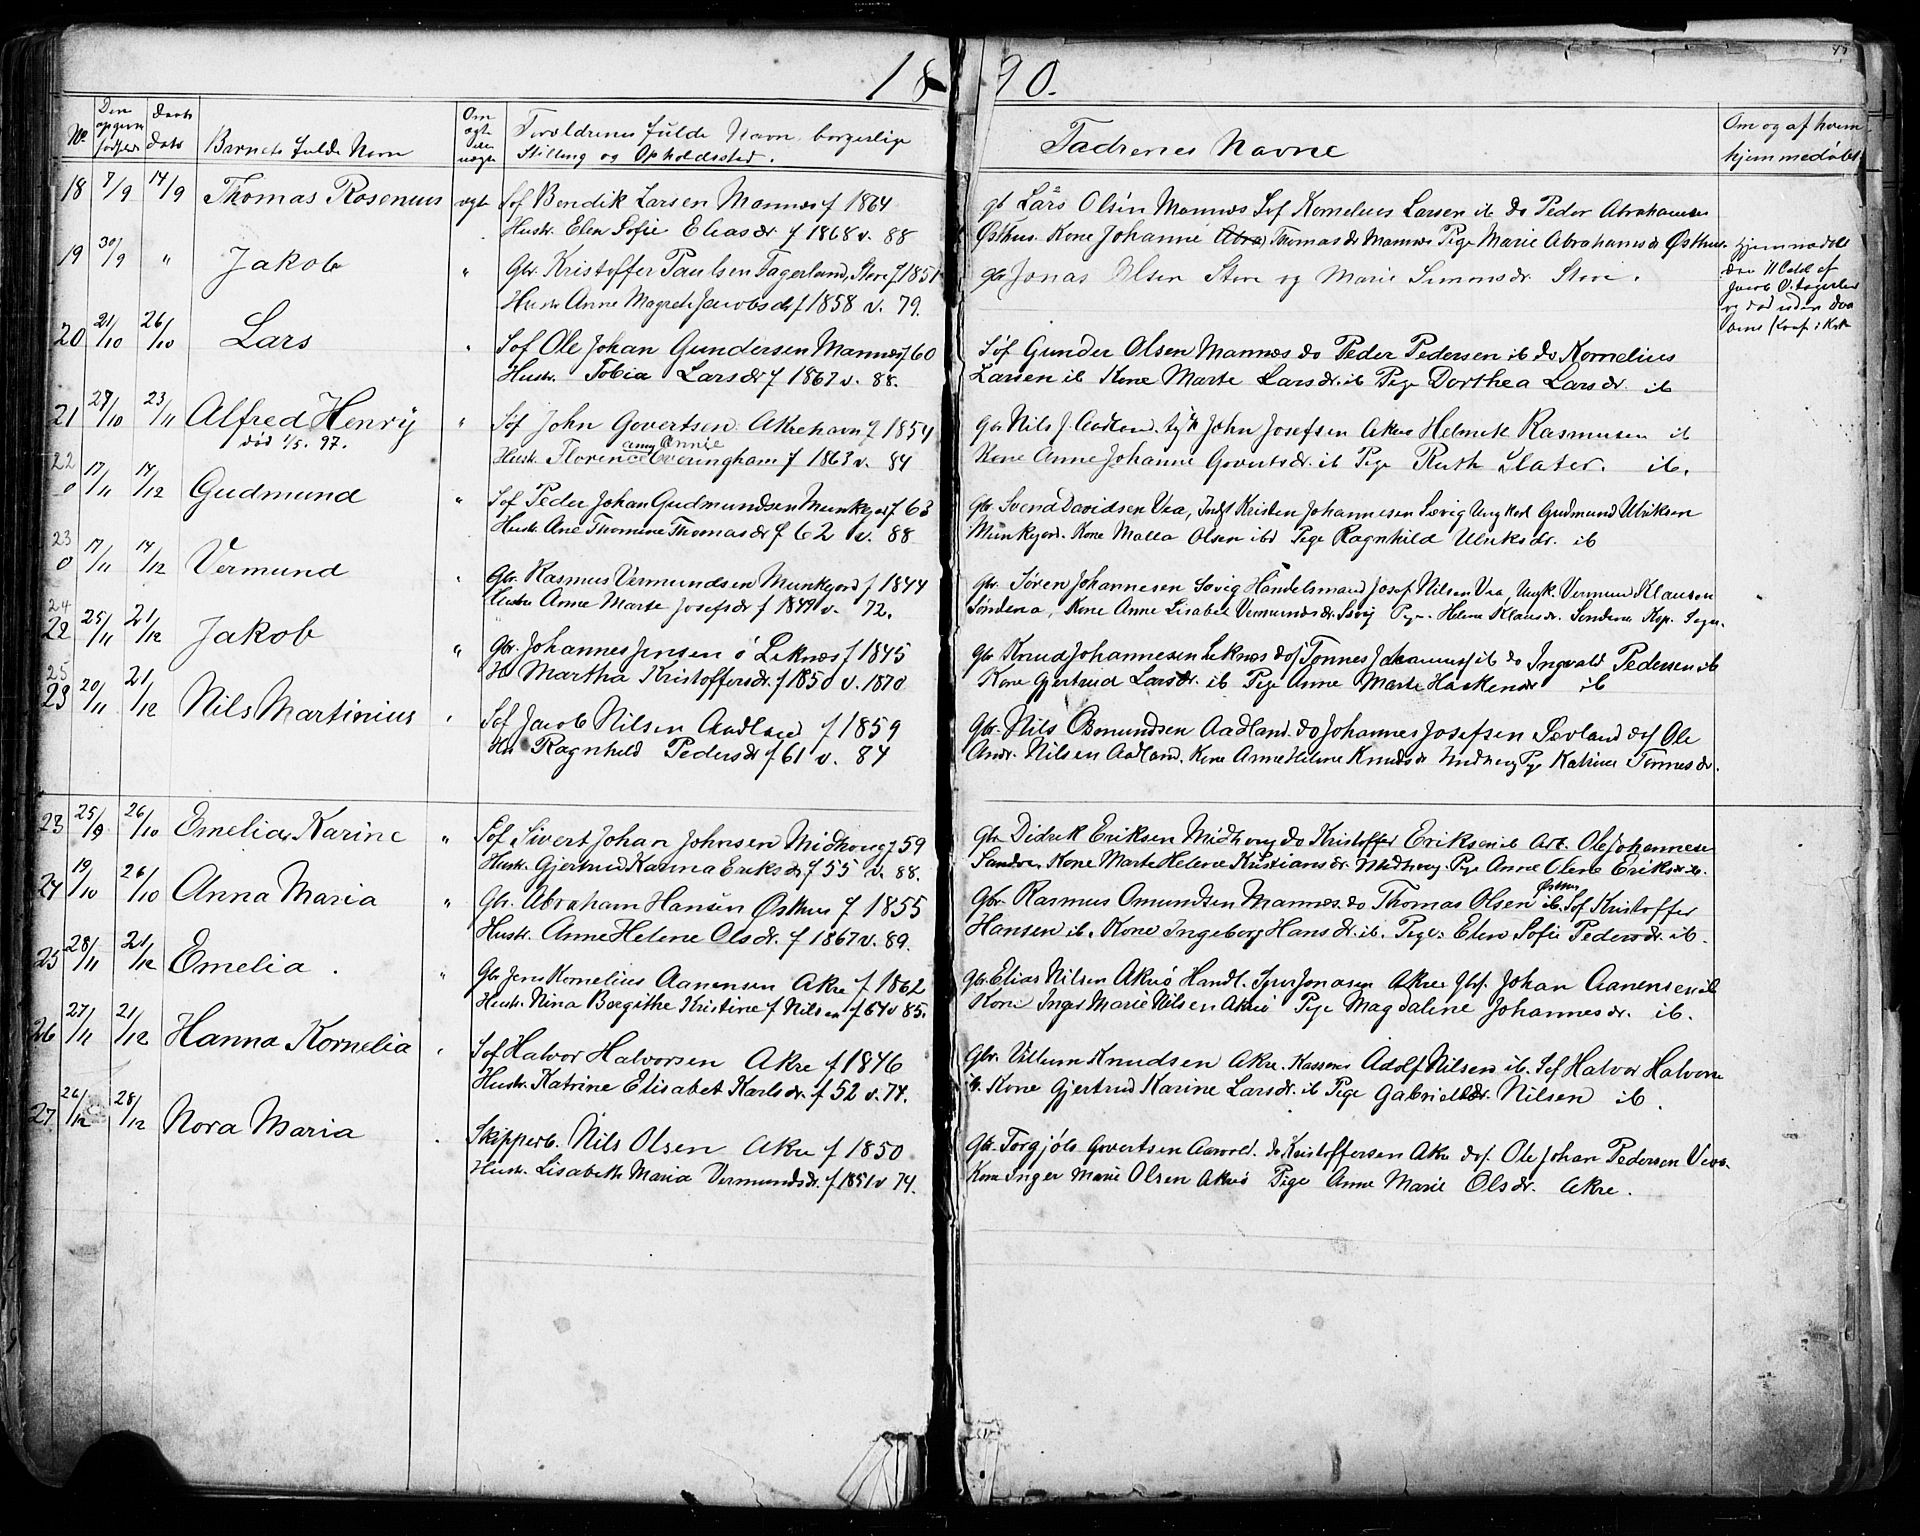 1890.
No Den opgivne fødsels Daabs dato Barnets fulde Navn Om ægte eller uægte Forældrenes fulde Navn, borgerlige Stilling og Opholdssted. Fadrenes Navne Om og af hvem hjemmedøbt
18 7/9 14/9 Thomas Rosenius ægte Søf Bendik Larsen Mannes f 1864 gb Lars Olsen Mannes Søf Kornelius Larsen ib do Peder Abrahamsen
Hustr. Elen Sofie Eliasdr f 1868 v. 88 Østhus. Kone Johanne Thomasdr Mannes Pige Marie Abrahamsdr Østhus.
19 30/9 " Jakob " Gbr. Kristoffer Paulsen Fagerland, Stene f 1851 gbr Jonas Olsen Stene og Marie Simonsdr. Stene. Hjemmedøbt
Hustr Anne Magrete Jacobsdr f 1858 v. 79. den 11 Octb af
20 21/10 26/10 Lars " Søf Ole Johan Gundersen Mannes f 60 Søf Gunder Olsen Mannes do Peder Pedersen ib do Kornelius
Hustr. Tobia Larsdr f 1867 v. 88. Larsen ib Kone Marte Larsdr. ib Pige Dorthea Larsdr. ib
21 27/10 23/11 Alfred Henry " Søf John Govertsen Akrehavn f 1854 gbr Nils J. Aadland. John Josefsen Akre Helmik Rasmusen ib
død 1/5. 97. Hustr. Florence Amy Annie Everingham f 1863 v. 84 Kone Anne Johanne Govertsdr. ib Pige Ruth Slater. ib.
22 0 17/11 14/12 Gudmund " Søf Peder Johan Gudmundsen Munkejord f 63 gbr. Svend Davidsen Vea, Indst Kristen Johannesen Sævig Ungkarl Gudmund Ulriksen
Hustr Ane Thomine Thomasdr f 62 v. 88 Munkejord. Kone Malla Olsen ibd Pige Ragnhild Ulriksdr. ib
23 0 17/11 14/12 Vermund " Gbr. Rasmus Vermundsen Munkejord f 1844 gbr. Søren Johannesen Sævig Handelsmand Josef Nilsen Vea, Ungk. Vermund Klausen
Hustru Anne Marte Josefsdr f 1849 v. 72. Søndena, Kone Anne Lisabet Vermundsdr. Sævig Pige. Helene Klausdr. Søndena
24 22 25/11 21/12 Jakob " Gbr. Johannes Jensen ö Liknes f 1845 gbr Knud Johannesen Liknes Tønnes Johannesen ib do Ingvald Pedersen ib
H Martha Kristoffersdr. f 1850 v. 1870 Kone Gjertrud Larsdr. ib Pige Anne Marte Haakensdr ib
25 23 20/11 21/12 Nils Martinius " Søf Jacob Nilsen Aadland f 1859 gbr. Nils Osmundsen Aadland. do Johannes Josefsen Sævland Ole
Hu Ragnhild Pedersdr f 61 v. 84 Andr. Nilsen Aadland. Kone Anne Helene Knudsdr Midhoug Pg Katrine Tønnesdr.
23 25/9 26/10 Emelia Karine " Søf. Sivert Johan Johnsen Midhoug f 59 gbr. Didrik Eriksen Midhoug do Kristoffer Eriksen ib Ole Johannesen
Hustr. Gjertrud Karina Eriksdr f 55 v. 88. Sandve. Kone Marte Helene Kristiansdr. Midhoug. Pige Anne Olene Eriksdr ib.
24 19/10 26/10 Anna Maria " Gbr. Abraham Hansen Østhus f 1855 Gbr. Rasmus Omundsen Mannes. do Thomas Olsen Østhus ib. Søf Kristoffer
Hustr. Anne Helene Olsdr. f 1867 v. 89. Hansen ib. Kone Ingeborg Hansdr. ib. Pige. Elen Sofie Pedersdr. ib.
25 28/11 21/12 Emelia. " Gbr Jens Kornelius Aanensen Akre f 1862 gbr Elias Nilsen Akrø Handl. Sjur Jonasen Akre Johan Aanensen ib
Hustr. Nina Bergithe Kristine f Nilsen f 64 v 85. Kone Inger Marie Nilsen Akrø Pige Magdaline Johannesdr. ib.
26 27/11 21/12 Hanna Kornelia " Søf Halvor Halvorsen Akre f 1846 gbr. Villum Knudsen Akre. Kasserer Adolf Nilsen ib. Søf Halvor Halvorsen
Hustr. Katrine Elisabet Karlsdr. f 52 v. 74. ib. Kone Gjertrud Karine Larsdr. ib Pige Gabrielle Nilsen ib.
27 26/12 28/12 Nora Maria . Skipperb. Nils Olsen Akre f 1850 gbr. Torgjøls Govertsen do Kristoffersen Akre Ole Johan Pedersen Vea.
Hustr. Lisabeth Maria Vermundsdr. f 1851 v 74. Kone Inger Marie Olsen Akrø Pige Anne Marie Olsdr. Akre.